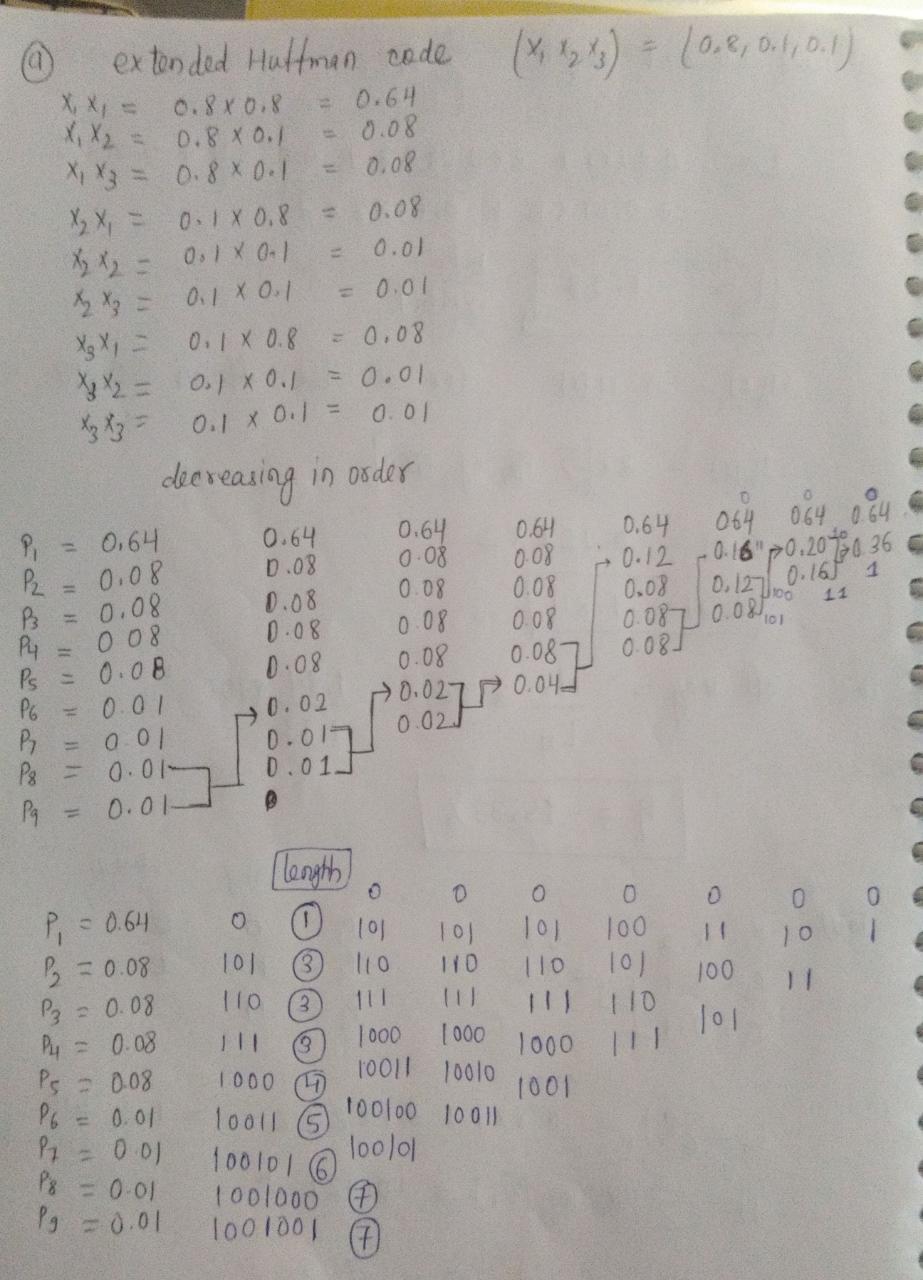 ⓐ extended Huffman code (X₁ X₂ X₃) = (0.8, 0.1, 0.1)
X₁ X₁ = 0.8 × 0.8 = 0.64
X₁ X₂ = 0.8 × 0.1 = 0.08
X₁ X₃ = 0.8 × 0.1 = 0.08
X₂ X₁ = 0.1 × 0.8 = 0.08
X₂ X₂ = 0.1 × 0.1 = 0.01
X₂ X₃ = 0.1 × 0.1 = 0.01
X₃ X₁ = 0.1 × 0.8 = 0.08
X₃ X₂ = 0.1 × 0.1 = 0.01
X₃ X₃ = 0.1 × 0.1 = 0.01
decreasing in order
0 0 0
P₁ = 0.64 0.64 0.64 0.64 0.64 064 064 0.64
P₂ = 0.08 0.08 0.08 0.08 0.12 0.16 0.20 10 0.36 1
P₃ = 0.08 0.08 0.08 0.08 0.08 0.12 100 0.16 11
P₄ = 0 08 0.08 0.08 0.08 0.08 0.08 101
P₅ = 0.08 0.08 0.08 0.08 0.08
P₆ = 0.01 0.02 0.02 0.04
P₇ = 0.01 0.01 0.02
P₈ = 0.01 0.01
P₉ = 0.01
length
P₁ = 0.64 0 ① 0 0 0 0 0 0 0
P₂ = 0.08 101 ③ 101 101 101 100 11 10 1
P₃ = 0.08 110 ③ 110 110 110 101 100 11
P₄ = 0.08 111 ③ 111 111 111 110 101
P₅ = 0.08 1000 ④ 1000 1000 1000 111
P₆ = 0.01 10011 ⑤ 10011 10010 1001
P₇ = 0.01 100101 ⑥ 100100 10011
P₈ = 0.01 1001000 ⑦ 100101
P₉ = 0.01 1001001 ⑦